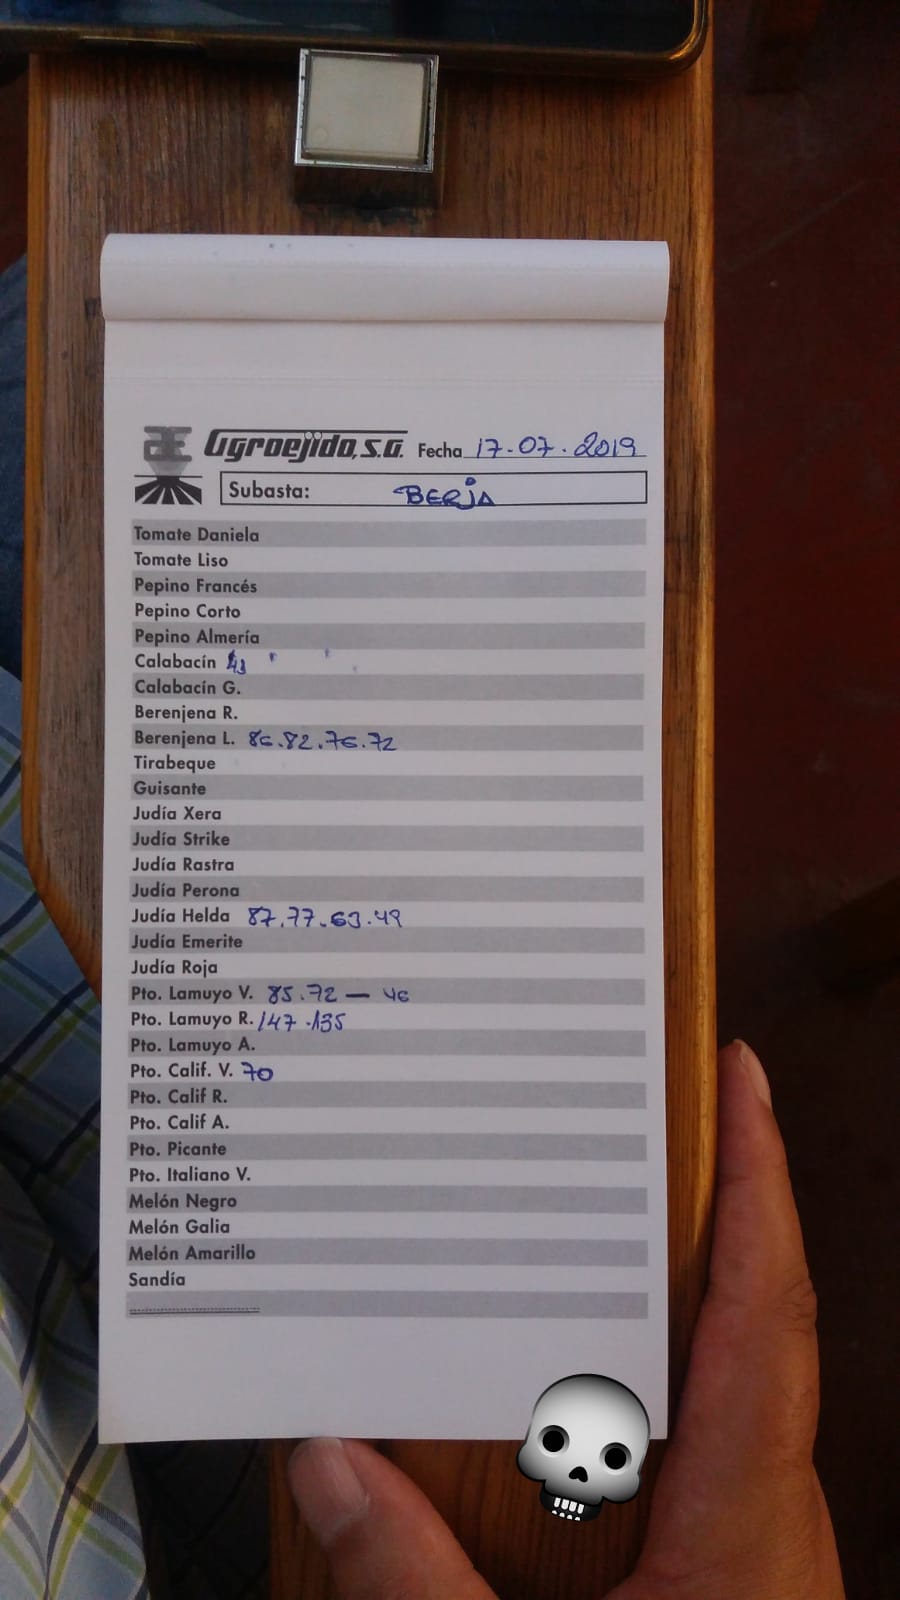 Agroejido, S.A. Fecha 17-07-2019
Subasta: BERJA
Tomate Daniela
Tomate Liso
Pepino Francés
Pepino Corto
Pepino Almería
Calabacín
Calabacín G.
Berenjena R.
Berenjena L. 86.82.76.72
Tirabeque
Guisante
Judía Xera
Judía Strike
Judía Rastra
Judía Perona
Judía Helda 87.77.63.49
Judía Emerite
Judía Roja
Pto. Lamuyo V. 85.72 — 46
Pto. Lamuyo R. 147.135
Pto. Lamuyo A.
Pto. Calif. V. 70
Pto. Calif R.
Pto. Calif A.
Pto. Picante
Pto. Italiano V.
Melón Negro
Melón Galia
Melón Amarillo
Sandía